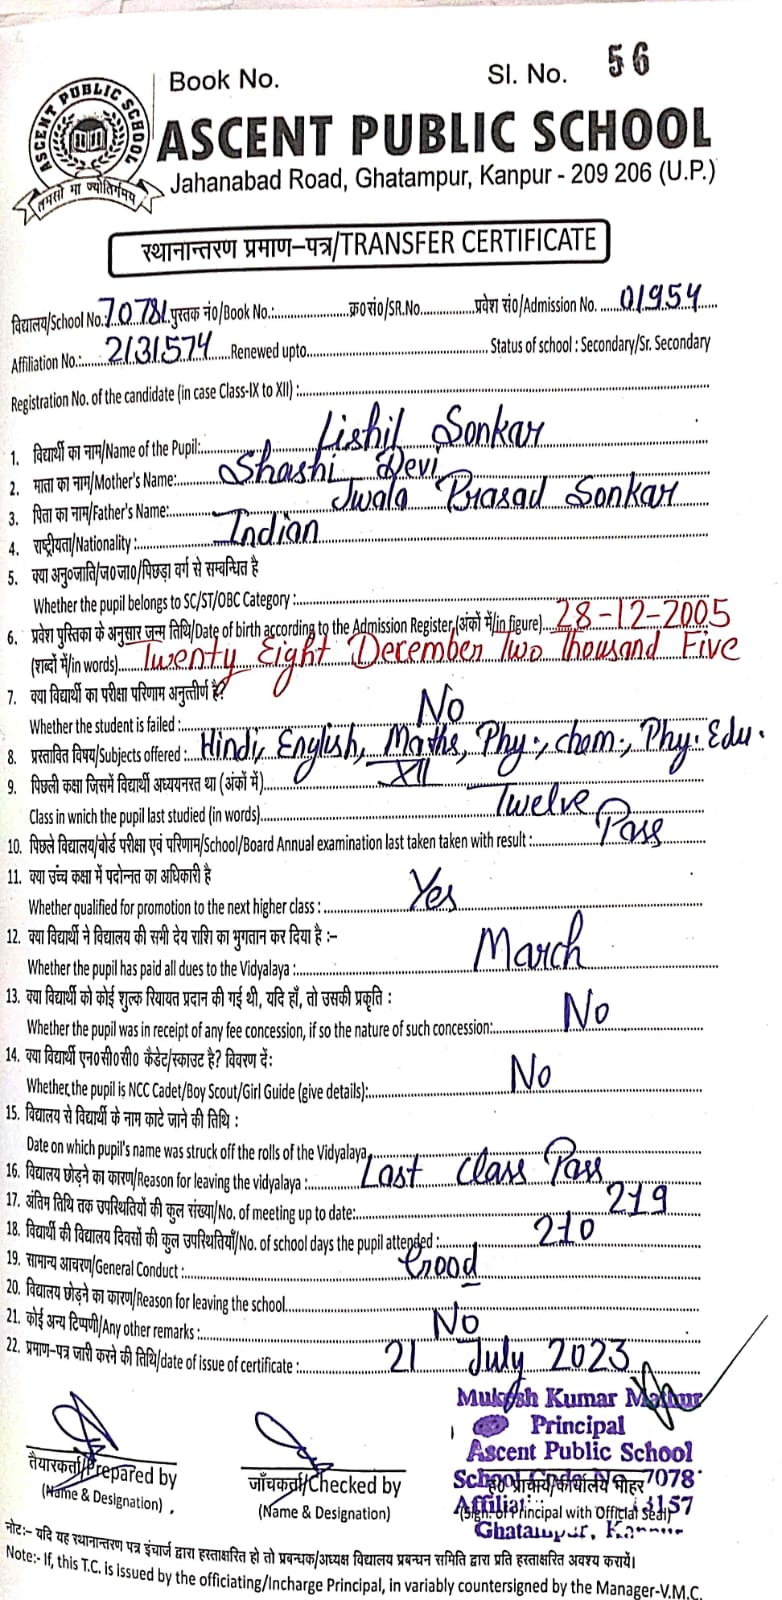 Book No.
Sl. No. 56
ASCENT PUBLIC SCHOOL
तमसो मा ज्योतिर्गमय
ASCENT PUBLIC SCHOOL
Jahanabad Road, Ghatampur, Kanpur - 209 206 (U.P.)
स्थानान्तरण प्रमाण-पत्र/TRANSFER CERTIFICATE
विद्यालय/School No. 70781 पुस्तक नं०/Book No.: क्र०सं०/SR.No. प्रवेश सं०/Admission No. 01954
Affiliation No.: 2131574 Renewed upto. Status of school : Secondary/Sr. Secondary
Registration No. of the candidate (in case Class-IX to XII) :
1. विद्यार्थी का नाम/Name of the Pupil: Lishil Sonkar
2. माता का नाम/Mother's Name: Shashi Devi
3. पिता का नाम/Father's Name: Jwala Prasad Sonkar
4. राष्ट्रीयता/Nationality : Indian
5. क्या अनु०जाति/ज०जा०/पिछड़ा वर्ग से सम्बन्धित है
Whether the pupil belongs to SC/ST/OBC Category :
6. प्रवेश पुस्तिका के अनुसार जन्म तिथि/Date of birth according to the Admission Register (अंकों में/in figure) 28-12-2005
(शब्दों में/in words) Twenty Eight December Two Thousand Five
7. क्या विद्यार्थी का परीक्षा परिणाम अनुत्तीर्ण है?
Whether the student is failed : No
8. प्रस्तावित विषय/Subjects offered : Hindi, English, Maths, Phy., chem., Phy. Edu.
9. पिछली कक्षा जिसमें विद्यार्थी अध्ययनरत था (अंकों में) XII
Class in wnich the pupil last studied (in words) Twelve
10. पिछले विद्यालय/बोर्ड परीक्षा एवं परिणाम/School/Board Annual examination last taken taken with result : Pass
11. क्या उच्च कक्षा में पदोन्नत का अधिकारी है
Whether qualified for promotion to the next higher class : Yes
12. क्या विद्यार्थी ने विद्यालय की सभी देय राशि का भुगतान कर दिया है :-
Whether the pupil has paid all dues to the Vidyalaya : March
13. क्या विद्यार्थी को कोई शुल्क रियायत प्रदान की गई थी, यदि हाँ, तो उसकी प्रकृति :
Whether the pupil was in receipt of any fee concession, if so the nature of such concession: No
14. क्या विद्यार्थी एन०सी०सी० कैडेट/स्काउट है? विवरण दें:
Whether, the pupil is NCC Cadet/Boy Scout/Girl Guide (give details): No
15. विद्यालय से विद्यार्थी के नाम काटे जाने की तिथि :
Date on which pupil's name was struck off the rolls of the Vidyalaya
16. विद्यालय छोड़ने का कारण/Reason for leaving the vidyalaya : Last Class Pass
17. अंतिम तिथि तक उपस्थितियों की कुल संख्या/No. of meeting up to date: 219
18. विद्यार्थी की विद्यालय दिवसों की कुल उपस्थितियाँ/No. of school days the pupil attended : 210
19. सामान्य आचरण/General Conduct : Good
20. विद्यालय छोड़ने का कारण/Reason for leaving the school
21. कोई अन्य टिप्पणी/Any other remarks : No
22. प्रमाण-पत्र जारी करने की तिथि/date of issue of certificate : 21 July 2023
Mukesh Kumar Mathur
Principal
Ascent Public School
तैयारकर्ता/Prepared by
(Name & Designation)
जाँचकर्ता/Checked by
(Name & Designation)
School 7078
ह० प्राचार्य/कार्यालय मोहर
(Sign. of Principal with Official Seal)
Ghatampur,
नोट:- यदि यह स्थानान्तरण पत्र इंचार्ज द्वारा हस्ताक्षरित हो तो प्रबन्धक/अध्यक्ष विद्यालय प्रबन्धन समिति द्वारा प्रति हस्ताक्षरित अवश्य करायें।
Note:- If, this T.C. is issued by the officiating/Incharge Principal, in variably countersigned by the Manager-V.M.C.